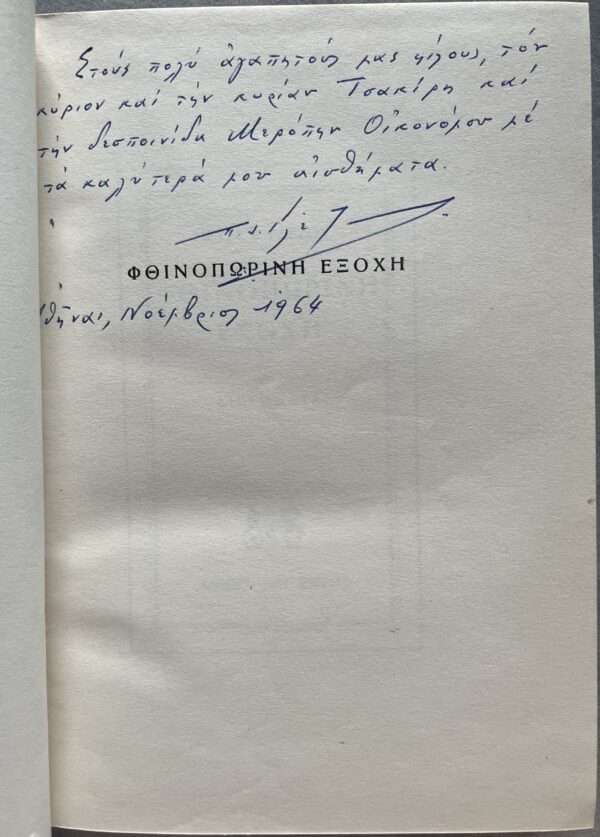 Στούς πολύ ἀγαπητούς μας φίλους, τόν
κύριον καί τήν κυρίαν Τσακίρη καί
τήν δεσποινίδα Μερόπην Οἰκονόμου μέ
τά καλύτερά μου αἰσθήματα.
ΦΘΙΝΟΠΩΡΙΝΗ ΕΞΟΧΗ
Ἀθῆναι, Νοέμβριος 1964